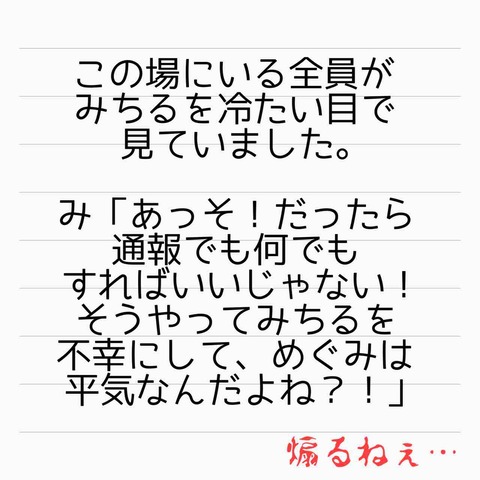 この場にいる全員が
みちるを冷たい目で
見ていました。
み「あっそ！だったら
通報でも何でも
すればいいじゃない！
そうやってみちるを
不幸にして、めぐみは
平気なんだよね？！」
煽るねぇ…